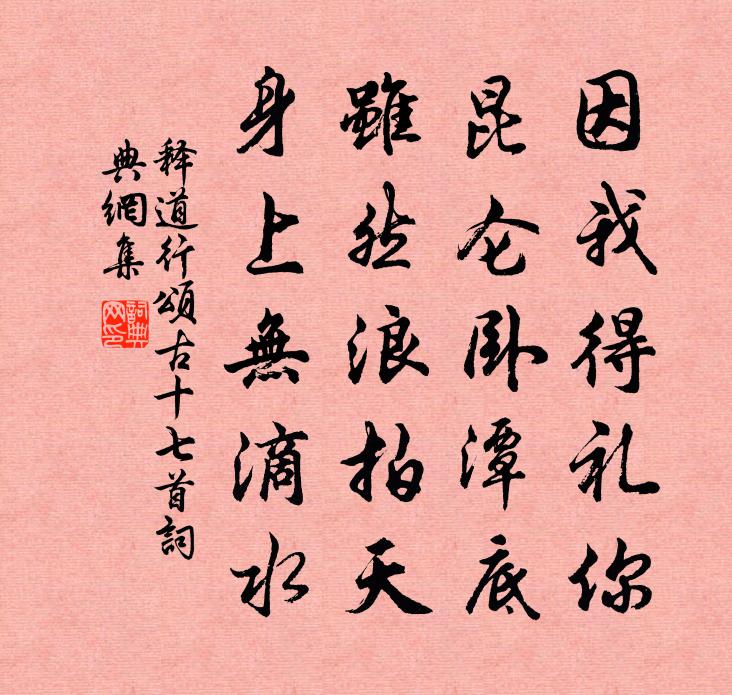 因我得礼你
昆仑卧潭底
雖然浪拍天
身上無滴水
释道行頌古十七首詞
典網集
詞典网印